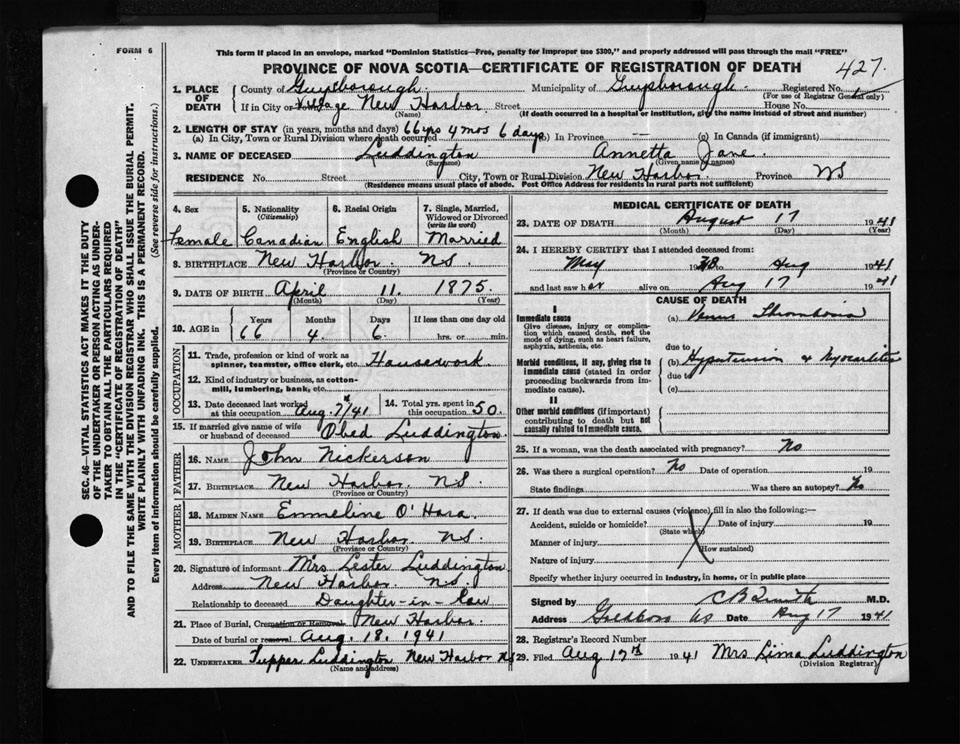 FORM 6
This form if placed in an envelope, marked "Dominion Statistics—Free, penalty for improper use $300," and properly addressed will pass through the mail "FREE"
PROVINCE OF NOVA SCOTIA—CERTIFICATE OF REGISTRATION OF DEATH
427.
SEC. 46—VITAL STATISTICS ACT MAKES IT THE DUTY
OF THE UNDERTAKER OR PERSON ACTING AS UNDER-
TAKER TO OBTAIN ALL THE PARTICULARS REQUIRED
IN THE "CERTIFICATE OF REGISTRATION OF DEATH"
AND TO FILE THE SAME WITH THE DIVISION REGISTRAR WHO SHALL ISSUE THE BURIAL PERMIT.
WRITE PLAINLY WITH UNFADING INK. THIS IS A PERMANENT RECORD.
Every item of information should be carefully supplied. (See reverse side for instructions.)
1. PLACE OF DEATH
County of Guysborough. Municipality of Guysborough Registered No.
(For use of Registrar General only)
If in City or Village New Harbor Street House No.
(Name) (If death occurred in a hospital or institution, give the name instead of street and number)
2. LENGTH OF STAY (in years, months and days) 66 yrs 4 mos 6 days
(a) In City, Town or Rural Division where death occurred (b) In Province — (c) In Canada (if immigrant)
3. NAME OF DECEASED Luddington Annetta Jane.
(Surname) (Given name or names)
RESIDENCE No. Street City, Town or Rural Division New Harbor. Province NS
(Residence means usual place of abode. Post Office Address for residents in rural parts not sufficient)
4. Sex
Female
5. Nationality
(Citizenship)
Canadian
6. Racial Origin
English
7. Single, Married,
Widowed or Divorced
(write the word)
Married
8. BIRTHPLACE New Harbor. NS.
(Province or Country)
9. DATE OF BIRTH April 11. 1875.
(Month) (Day) (Year)
10. AGE in
Years Months Days If less than one day old
66 4. 6. hrs. or min.
OCCUPATION
11. Trade, profession or kind of work as
spinner, teamster, office clerk, etc. Housework
12. Kind of industry or business, as cotton-
mill, lumbering, bank, etc.
13. Date deceased last worked
at this occupation Aug. 7/41
14. Total yrs. spent in
this occupation 50.
15. If married give name of wife
or husband of deceased Obed Luddington
FATHER
16. NAME John Nickerson
17. BIRTHPLACE New Harbor. NS.
(Province or Country)
MOTHER
18. MAIDEN NAME Emmeline O'Hara.
19. BIRTHPLACE New Harbor NS.
(Province or Country)
20. Signature of informant Mrs Lester Luddington
Address New Harbor. NS.
Relationship to deceased Daughter-in-law
21. Place of Burial, Cremation or Removal New Harbor.
Date of burial or removal Aug. 18. 1941
22. UNDERTAKER Tupper Luddington New Harbor NS
(Name and address)
MEDICAL CERTIFICATE OF DEATH
23. DATE OF DEATH August 17 1941
(Month) (Day) (Year)
24. I HEREBY CERTIFY that I attended deceased from:
May 1938 to Aug 1941
and last saw her alive on Aug 17 1941
CAUSE OF DEATH
I
Immediate cause
Give disease, injury or complica-
tion which caused death, not the
mode of dying, such as heart failure,
asphyxia, asthenia, etc.
(a) Venous Thrombosis
due to
Morbid conditions, if any, giving rise to
immediate cause (stated in order
proceeding backwards from im-
mediate cause).
(b) Hypertension & Myocarditis
due to
(c)
II
Other morbid conditions (if important)
contributing to death but not
causally related to immediate cause.
25. If a woman, was the death associated with pregnancy? No
26. Was there a surgical operation? No Date of operation 19
State findings Was there an autopsy? No
27. If death was due to external causes (violence), fill in also the following:—
Accident, suicide or homicide? Date of injury 19
(State which)
Manner of injury
(How sustained)
Nature of injury
Specify whether injury occurred in industry, in home, or in public place
Signed by C B Smith M.D.
Address Goldboro NS Date Aug 17 1941
28. Registrar's Record Number
29. Filed Aug 17th 1941 Mrs Lima Luddington
(Division Registrar)